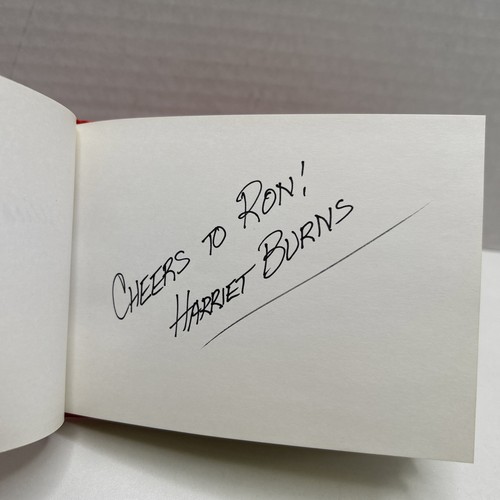 CHEERS TO RON!
HARRIET BURNS